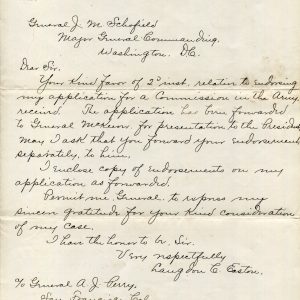 General J. M. Schofield
Major General Commanding.
Washington. DC.
Dear Sir.
Your kind favor of 2d inst, relative to endorsing
my application for a Commission in the Army
receivd. The application has been forwarded
to General McKeever for presentation to the President
May I ask that you forward your Endorsement
separately, to him.
I Enclose copy of Endorsements on my
application as forwarded.
Permit me, General, to express my
sincere gratitude for your kind consideration
of my case.
I have the honor to be, Sir.
Very respectfully
Langdon C. Easton.
To General A. J. Perry.
San Francisco Cal.